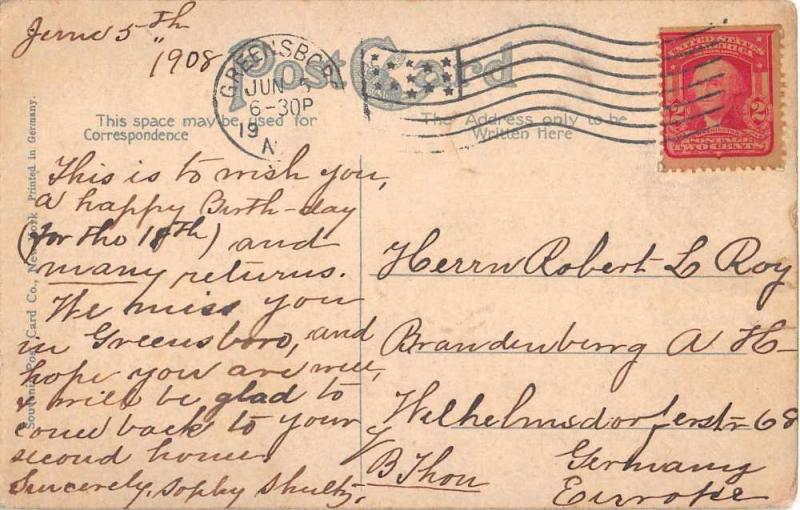 June 5th
1908
Post Card
GREENSBORO
JUN 5
6-30P
19
N
UNITED STATES OF AMERICA
2 2
POSTAGE
TWO CENTS
This space may be used for
Correspondence
The Address only to be
Written Here
Souvenir Post Card Co., New York Printed in Germany.
This is to wish you,
a happy Birth-day
(for the 18th) and
many returns.
We miss you
in Greensboro, and
hope you are well,
& will be glad to
come back to your
second home.
Sincerely, Sophy Shultz.
Herrn Robert L Roy
Brandenberrg A H-
Wilhelmsdorferstr 68
B Thon
Germany
Europe